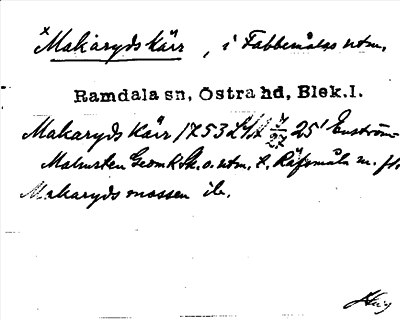 x Makaryds kärr, i Fabbemålas utm.
Ramdala sn, Östra hd, Blek.l.
Makaryds Kärr 1753 LSA 7/27 25' Enström
Malmsten Geom K Sk. o. utm. t. Räfsmåla m. fl.
Makaryds mossen ib.